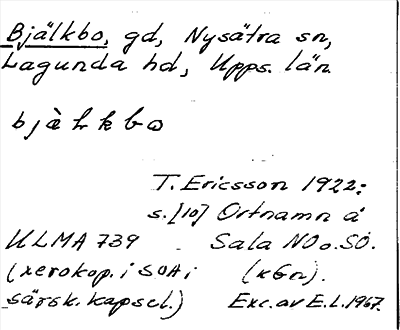 Bjälkbo, gd, Nysätra sn,
Lagunda hd, Upps. län.
bjàłkbω
T. Ericsson 1922:
s. [10] Ortnamn å
ULMA 739 Sala NO o. SO.
(xerokop. i SOA i (xGn).
särsk. kapsel.) Exc. av E.L. 1967.